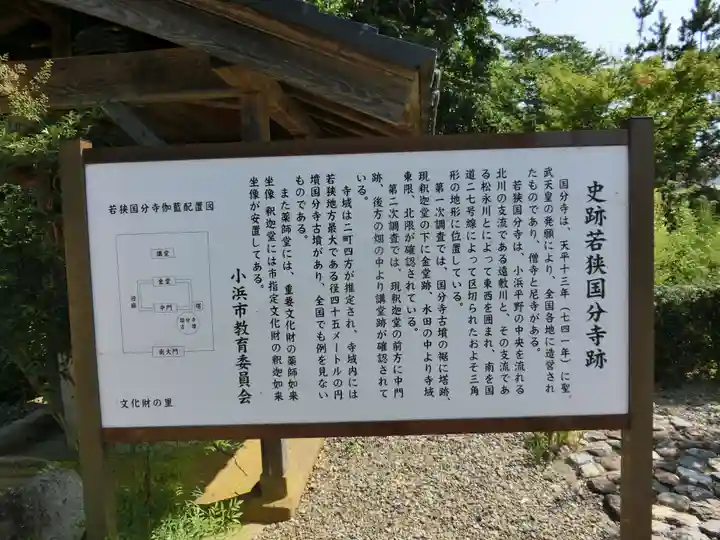 史跡若狭国分寺跡
国分寺は、天平十三年(七四一年)に聖
武天皇の発願により、全国各地に造営され
たものであり、僧寺と尼寺がある。
若狭国分寺は、小浜平野の中央を流れる
北川の支流である遠敷川と、その支流であ
る松永川とによって東西を囲まれ、南を国
道二七号線によって区切られたおよそ三角
形の地形に位置している。
第一次調査では、国分寺古墳の裾に塔跡、
現釈迦堂の下に金堂跡、水田の中より寺域
東限、北限が確認されている。
第二次調査では、現釈迦堂の前方に中門
跡、後方の畑の中より講堂跡が確認されて
いる。
寺域は二町四方が推定され、寺域内には
若狭地方最大である径四十五メートルの円
墳国分寺古墳があり、全国でも例を見ない
ものである。
また薬師堂には、重要文化財の薬師如来
坐像 釈迦堂には市指定文化財の釈迦如来
坐像が安置してある。
小浜市教育委員会
若狭国分寺伽藍配置図
講堂
金堂
回廊
中門
塔
国分寺
古墳
南大門
文化財の里